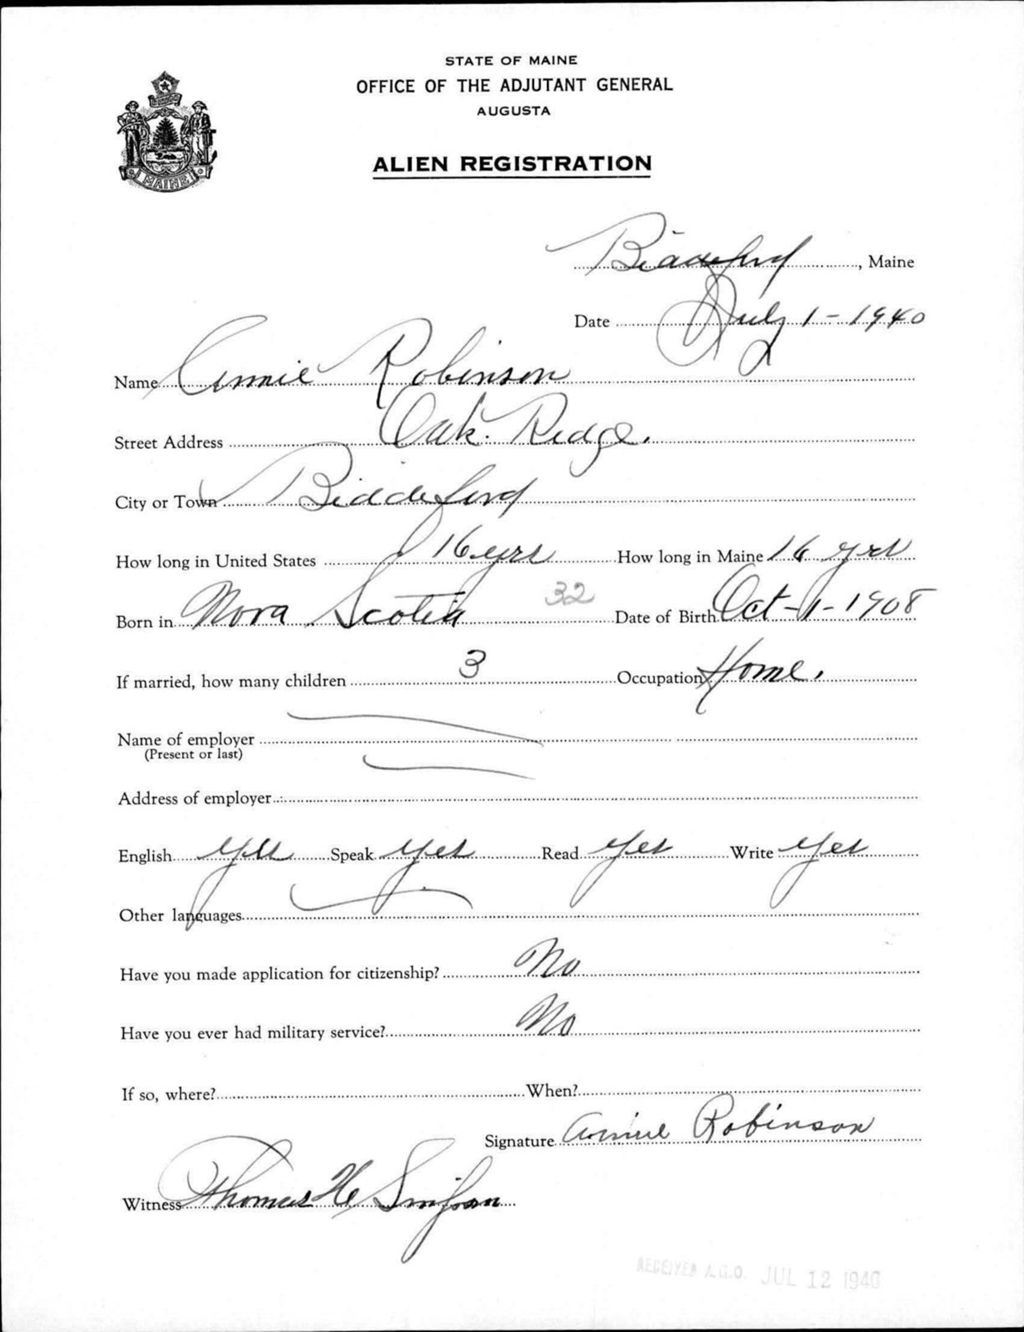 STATE OF MAINE
OFFICE OF THE ADJUTANT GENERAL
AUGUSTA
MAINE
ALIEN REGISTRATION
Biddeford, Maine
Date July 1 - 1940
Name Annie Robinson
Street Address Oak Ridge.
City or Town Biddeford
How long in United States 16 yrs How long in Maine 16 yrs
Born in Nova Scotia 32 Date of Birth Oct - 1 - 1908
If married, how many children 3 Occupation Home.
Name of employer
(Present or last)
Address of employer
English Yes Speak Yes Read Yes Write Yes
Other languages
Have you made application for citizenship? No
Have you ever had military service? No
If so, where? When?
Signature Annie Robinson
Witness Thomas H
RECEIVED A.G.O. JUL 12 1940